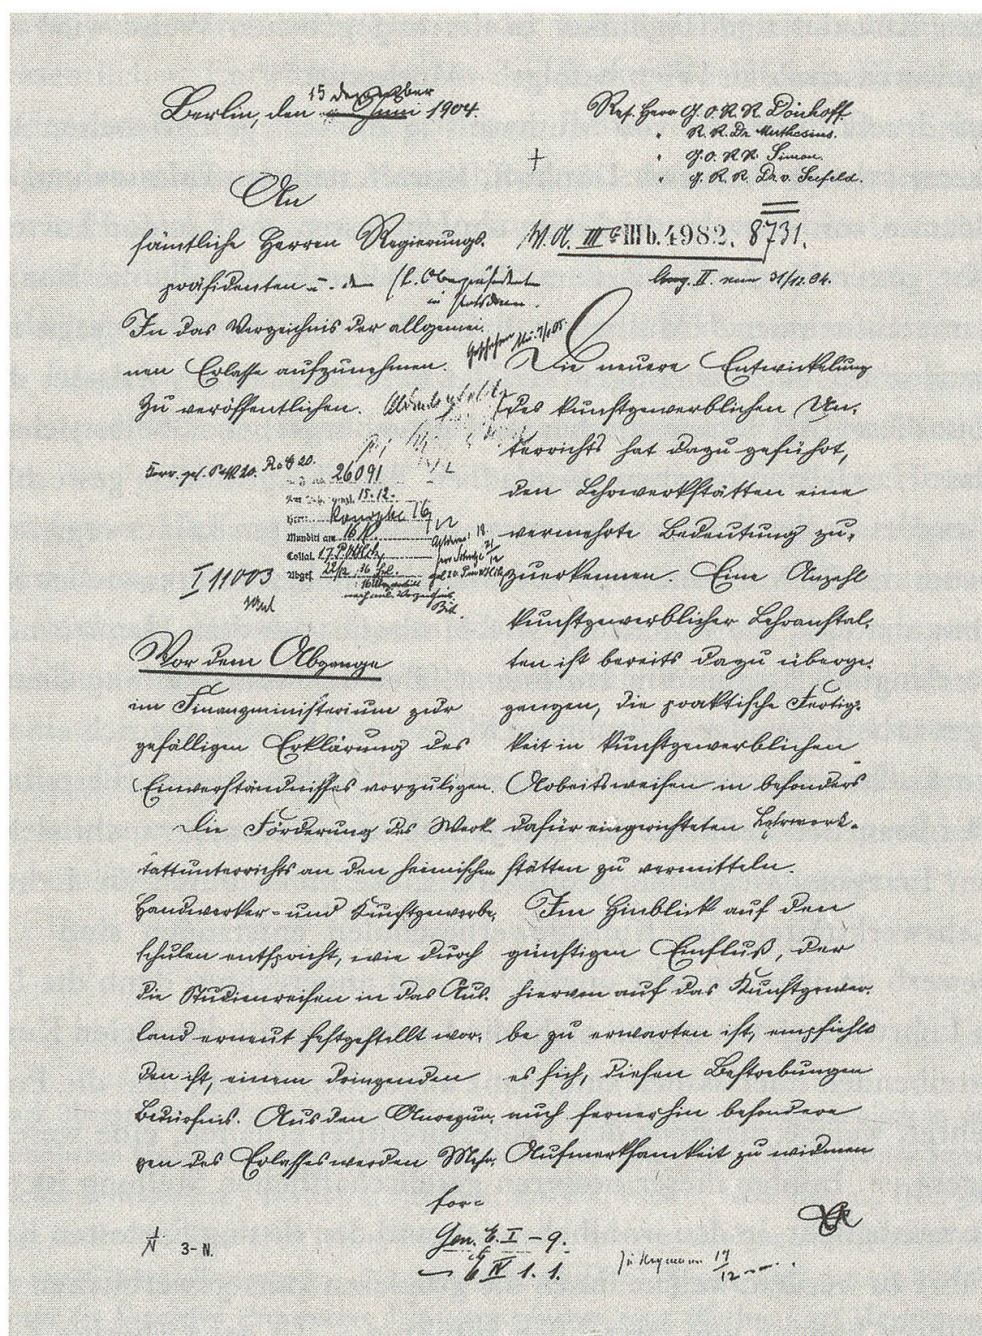 Berlin, den 15 Dezember 1904.
Ref. Herr G.O.R.R. Dönhoff
" R.R. Dr. Muthesius.
" G.O.R.R. Simon.
G.R.R. Dr. v. Seefeld.
An
sämtliche Herren Regierungs-
präsidenten u. den H. Oberpräsidenten
in Potsdam.
III b. 4982. 8731.
Ang. II. zum 31/12.04.
In das Verzeichnis der allgemei-
nen Erlasse aufzunehmen.
Zu veröffentlichen.
26091
15.12.
Mundirt am 16
Collat.
Abges. 22/12
I 11003
Vor dem Abgange
im Finanzministerium zur
gefälligen Erklärung des
Einverständnisses vorzulegen.
Die Förderung des Werk-
stattunterrichts an den heimischen
Handwerker- und Kunstgewerbe-
schulen entspricht, wie durch
die Studienreisen in das Aus-
land erneut festgestellt wor-
den ist, einem dringenden
Bedürfnis. Aus den Anregun-
gen des Erlasses werden Mehr-
for-
Die neuere Entwickelung
des kunstgewerblichen Un-
terrichts hat dazu geführt,
den Lehrwerkstätten eine
vermehrte Bedeutung zu-
zuerkennen. Eine Anzahl
kunstgewerblicher Lehranstal-
ten ist bereits dazu überge-
gangen, die praktische Fertig-
keit in kunstgewerblichen
Arbeitsweisen in besonders
dafür eingerichteten Lehrwerk-
stätten zu vermitteln.
Im Hinblick auf den
günstigen Einfluß, der
hiervon auf das Kunstgewer-
be zu erwarten ist, empfiehlt
es sich, diesen Bestrebungen
auch fernerhin besondere
Aufmerksamkeit zu widmen
3-N.
Gen. E. I - 9.
6 IV 1. 1.
17/12